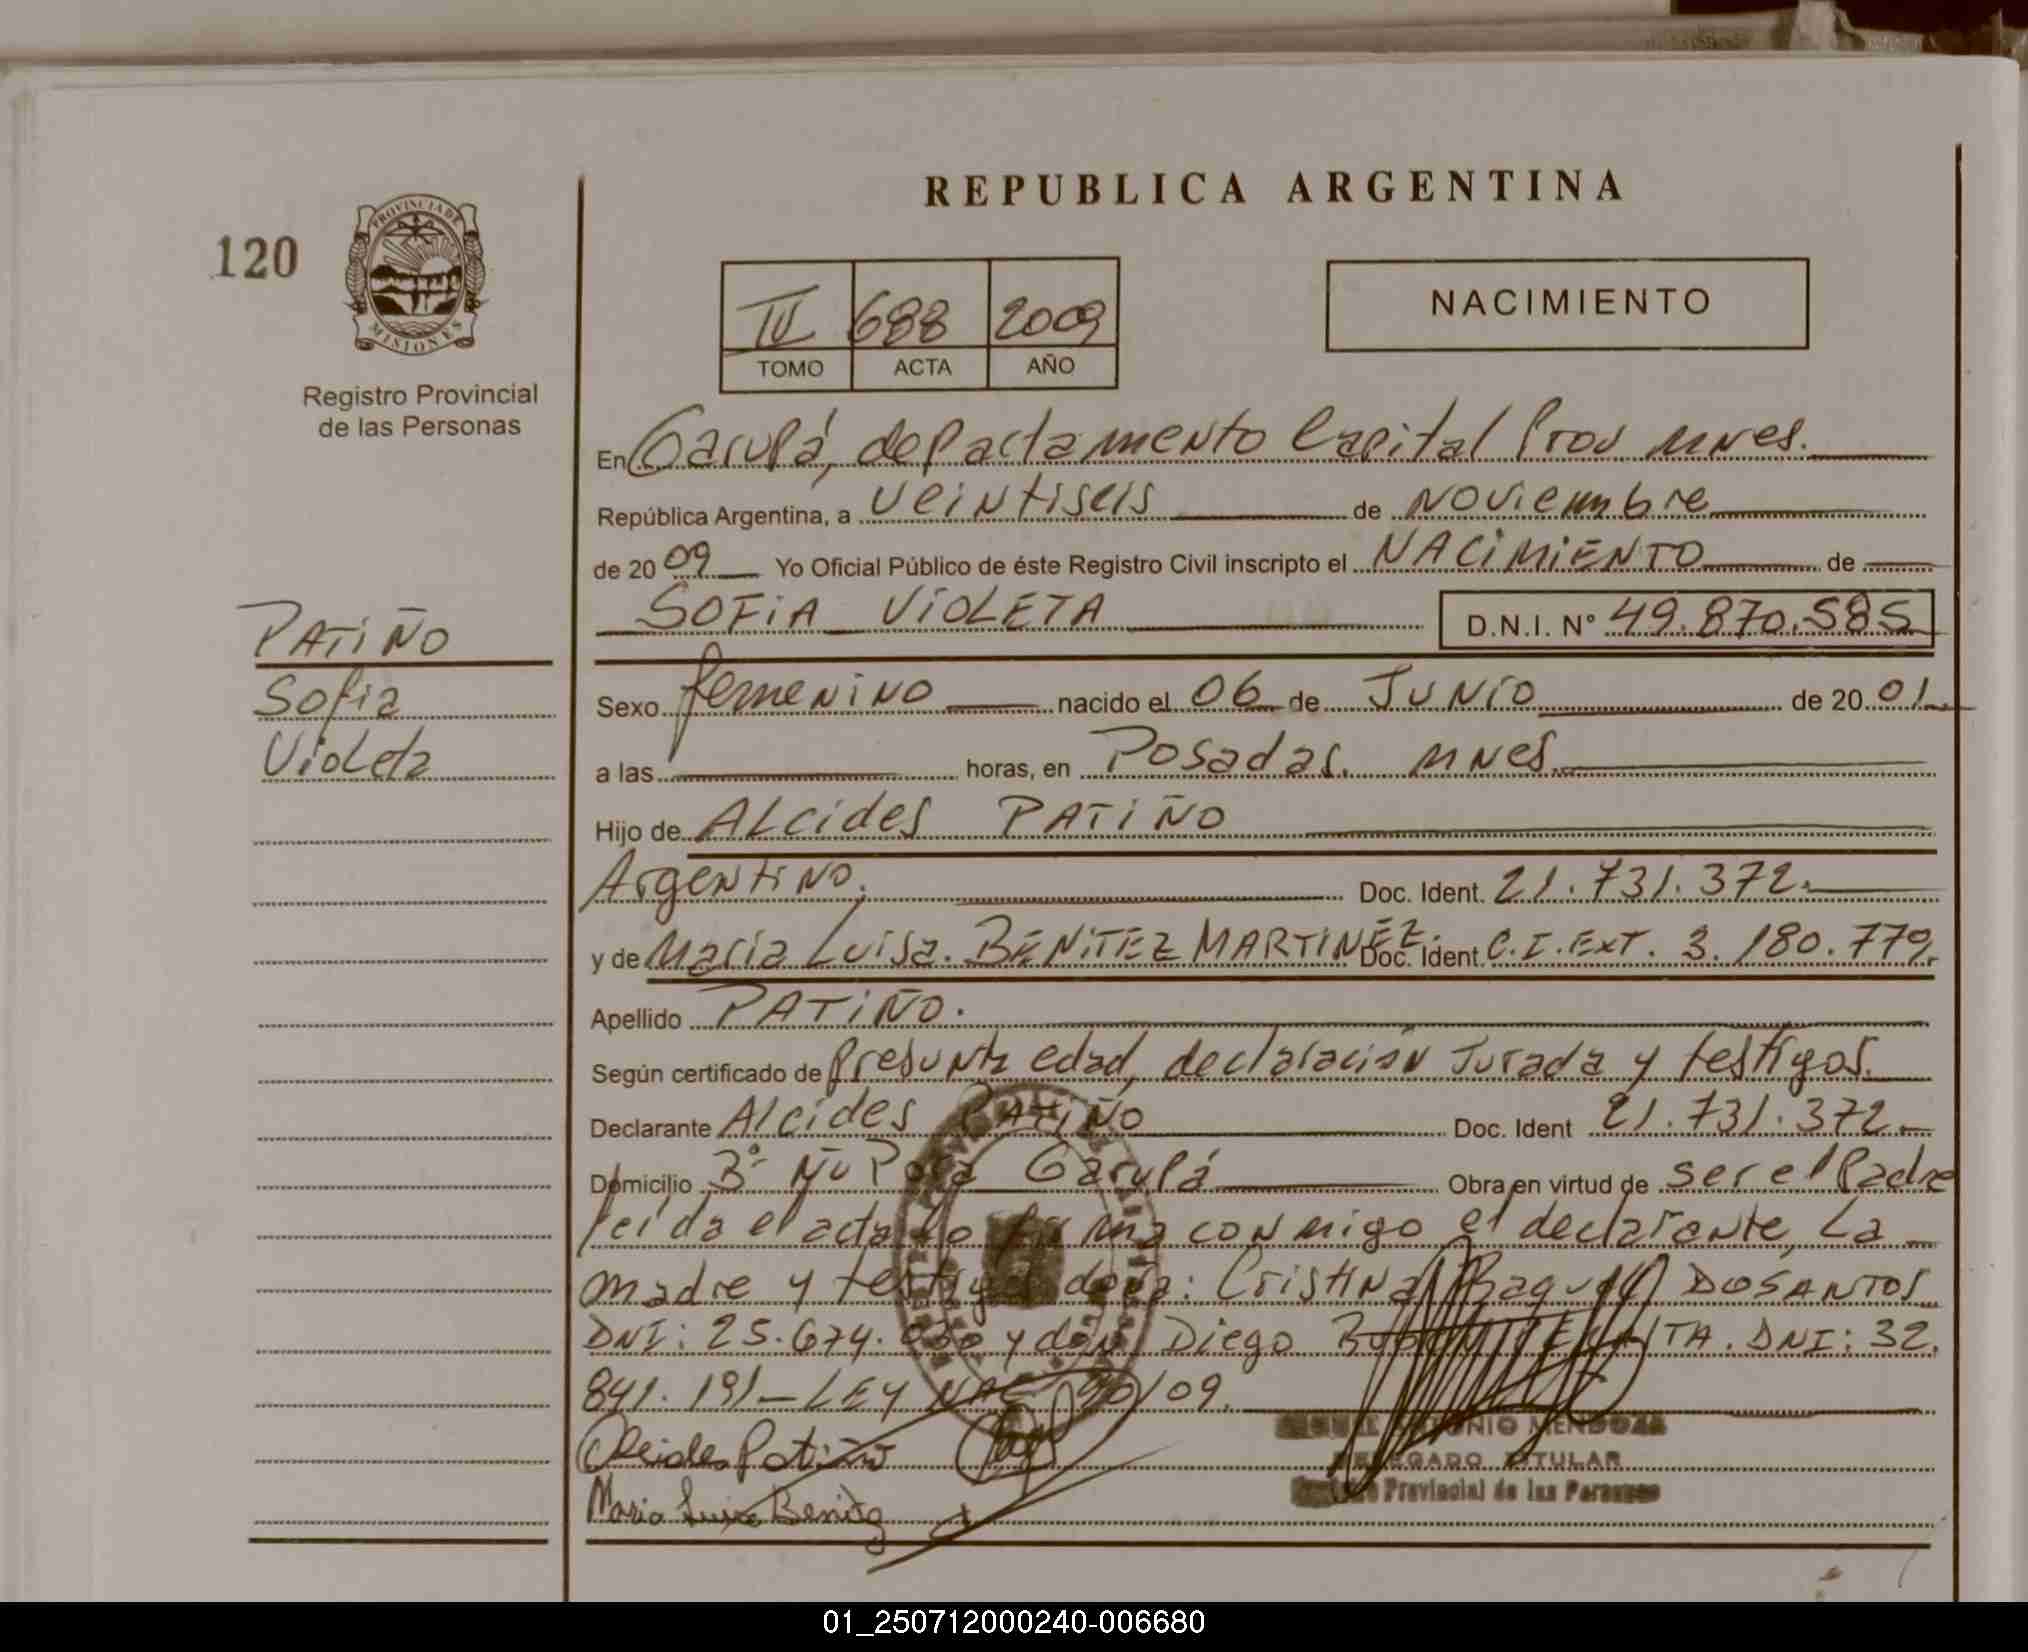 REPUBLICA ARGENTINA
120
PROVINCIA DE
MISIONES
Registro Provincial
de las Personas
IV 688 2009
TOMO ACTA AÑO
NACIMIENTO
En Garupá, departamento Capital Prov Mnes.
República Argentina, a veintiseis de Noviembre
de 2009 Yo Oficial Público de éste Registro Civil inscripto el NACIMIENTO de
SOFIA VIOLETA D.N.I. N° 49.870.585
PATIÑO
Sofia
Violeta
Sexo femenino nacido el 06 de JUNIO de 2001
a las horas, en Posadas. Mnes.
Hijo de ALcides PATIÑO
Argentino. Doc. Ident. 21.731.372.
y de Maria Luisa. BENITEZ MARTINEZ. Doc. Ident. C.I. EXT. 3.180.779.
Apellido PATIÑO.
Según certificado de presunta edad, declaración Jurada y testigos.
Declarante Alcides PATIÑO Doc. Ident 21.731.372.
Domicilio B° Ñu Pora Garupá Obra en virtud de ser el Padre
leída el acta la firma conmigo el declarante, La
madre y testigos doña: Cristina Raquel DOSANTOS
DNI: 25.674. y don Diego DNI: 32.
841.191 - LEY NAC 90/09.
Alcides Patiño
Maria Luisa Benitez
ANTONIO MENDOZA
DELEGADO TITULAR
Provincial de las Personas
01_250712000240-006680